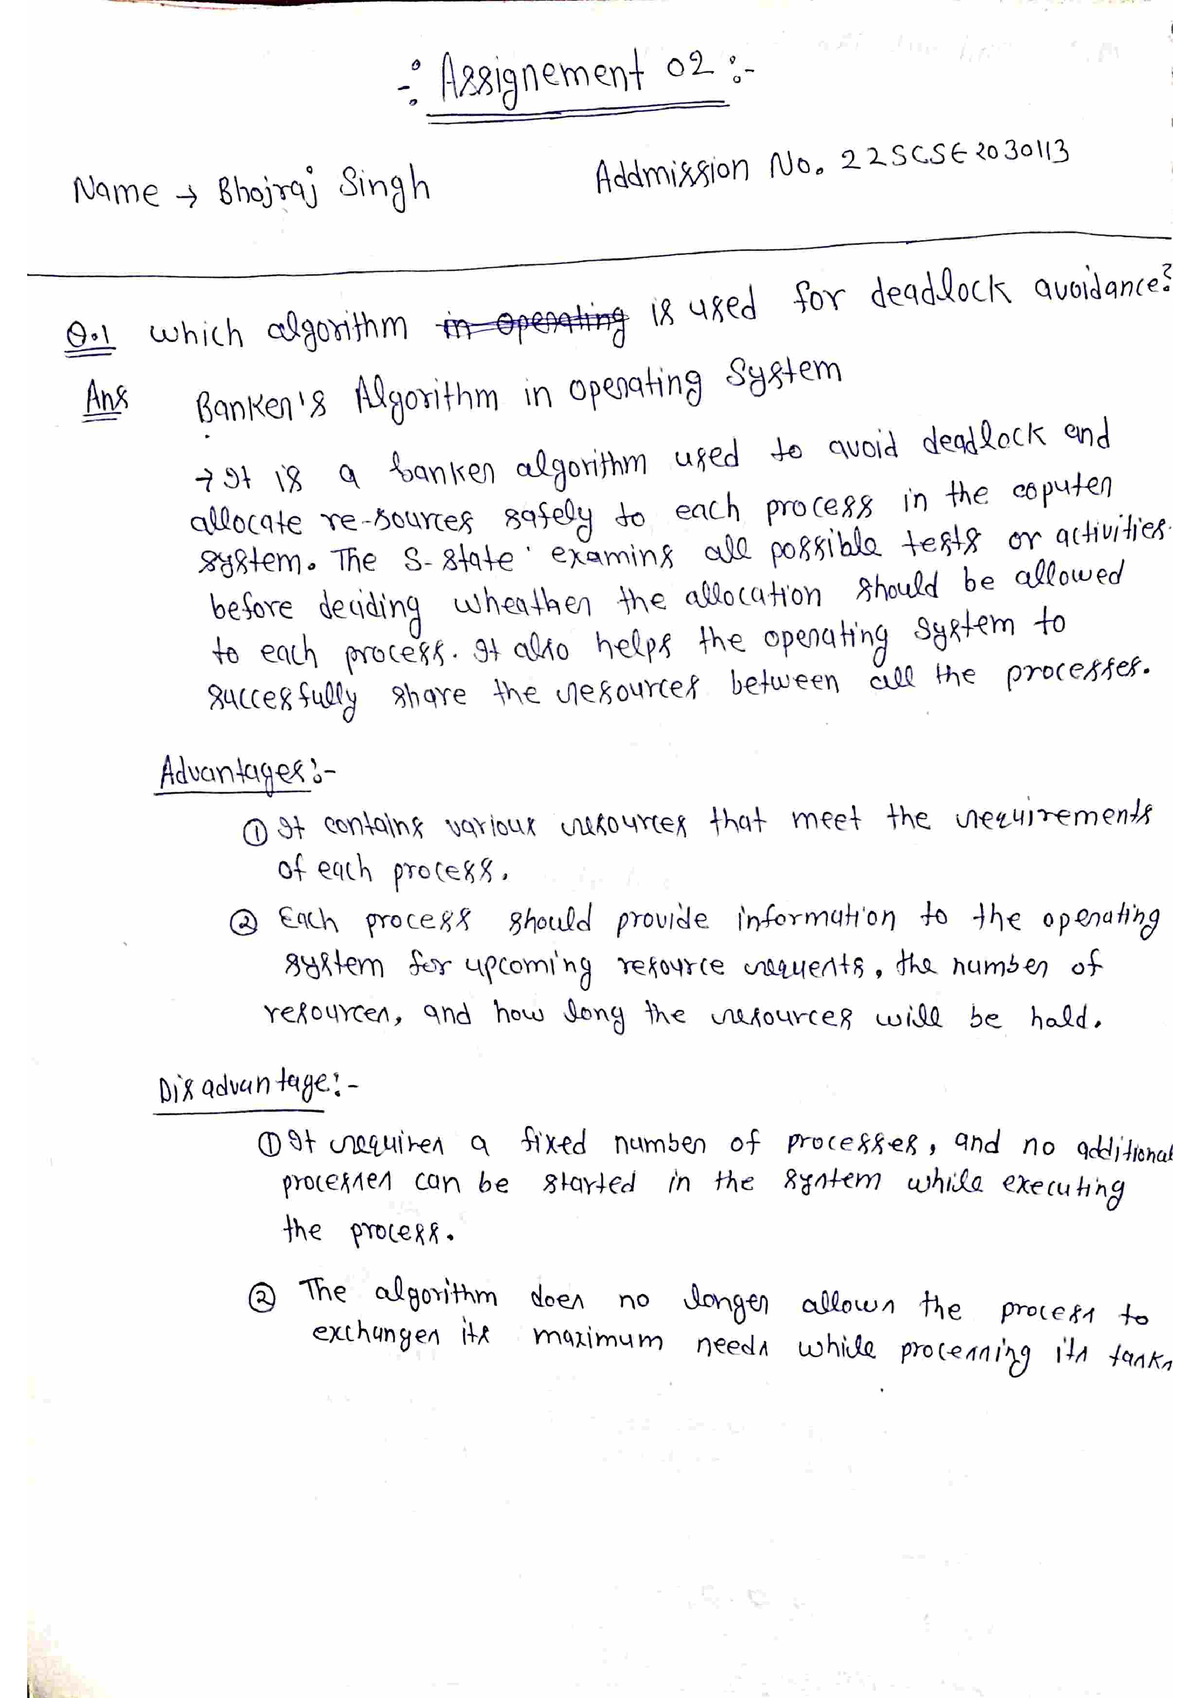 -: Assignement 02 :-
Name → Bhojraj Singh
Addmission No. 22SCSE2030113
Q.1 which algorithm in operating is used for deadlock avoidance?
Ans Banker's Algorithm in operating System
→ It is a banker algorithm used to avoid deadlock and
allocate re-sources safely to each process in the coputer
system. The S-state' examins all possible tests or activities.
before deciding wheather the allocation should be allowed
to each process. It also helps the operating system to
successfully share the resources between all the processes.
Advantages:-
① It contains various resources that meet the requirements
of each process.
② Each process should provide information to the operating
system for upcoming resource requests, the number of
resources, and how long the resources will be hald.
Disadvantage:-
① It requires a fixed number of processes, and no additional
processes can be started in the system while executing
the process.
② The algorithm does no longer allows the process to
exchanges its maximum needs while processing its tasks